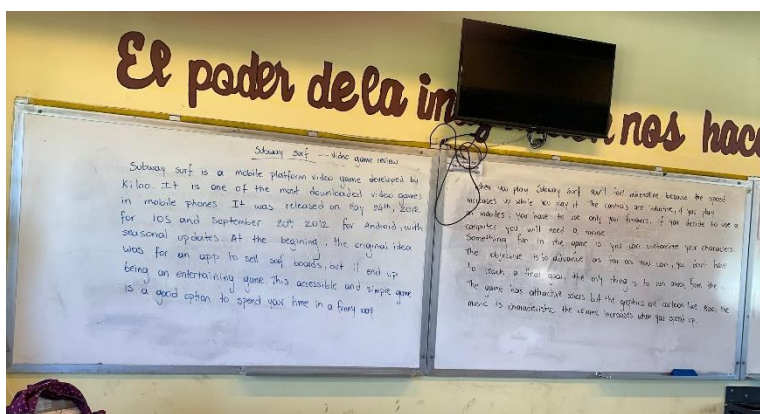 El poder de la im nos hace
Subway surf - video game review
Subway surf is a mobile platform video game developed by
Kiloo. It is one of the most downloaded video games
in mobile phones. It was released on May 24th, 2012
for IOS and September 2012 for Android, with
seasonal updates. At the begining, the original idea
was for an app to sell surf boards, but it end up
being an entertaining game. This accessible and simple game
is a good option to spend your time in a funny way
when you play Subway surf you'll feel adrenaline because the speed
increases up while you play it. The controls are intuitive, if you play
in mobiles, you have to use only your fingers, if you decide to use a
computer you will need a mouse
Something fun in the game is you can customize your characters
The objective is to advance as far as you can, you don't have
to reach a final goal, the only thing is to run away from the
The game has attractive colors but the graphics are cartoon like. Also, the
music is characteristic, the volume increases when you speed up.